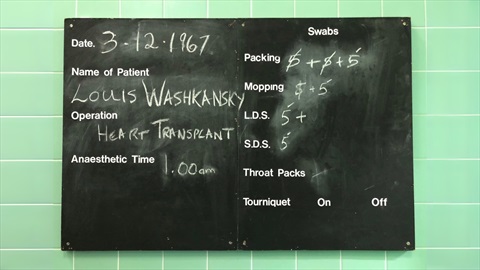 Date. 3-12-1967
Name of Patient
LOUIS WASHKANSKY
Operation
HEART TRANSPLANT
Anaesthetic Time
1.00am
Swabs
Packing 5 + 5 + 5
Mopping 5 + 5
L.D.S. 5 +
S.D.S. 5
Throat Packs
Tourniquet On Off